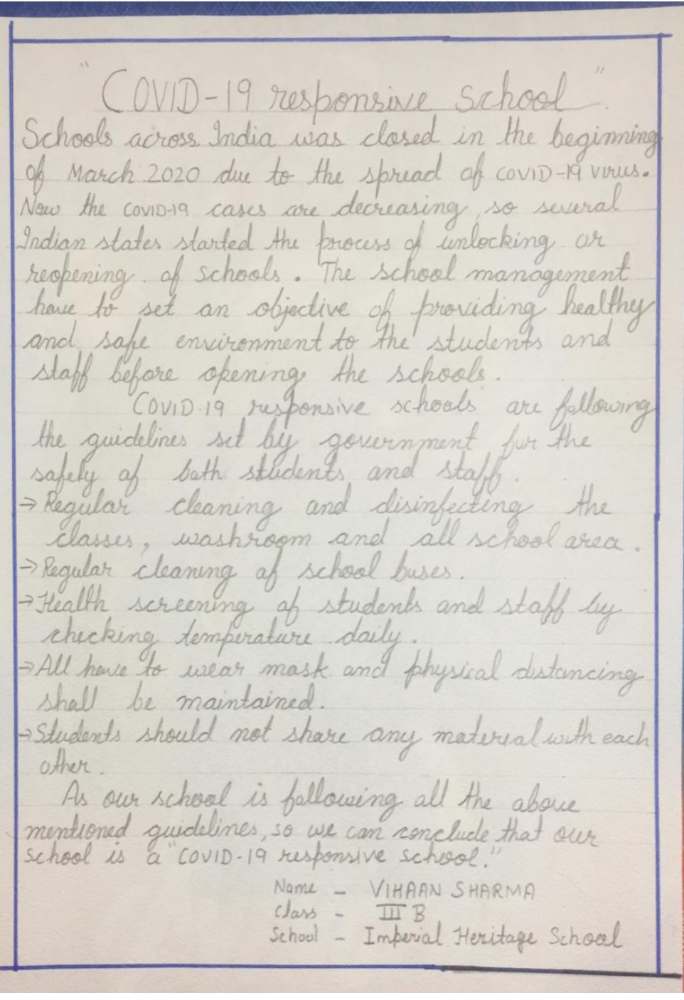 "COVID-19 responsive school".
Schools across India was closed in the beginning
of March 2020 due to the spread of COVID-19 virus.
Now the COVID-19 cases are decreasing, so several
Indian states started the process of unlocking or
reopening of schools. The school management
have to set an objective of providing healthy
and safe environment to the students and
staff before opening the schools.
COVID-19 responsive schools are following
the guidelines set by government for the
safety of both students and staff.
→ Regular cleaning and disinfecting the
classes, washroom and all school area.
→ Regular cleaning of school buses.
→ Health screening of students and staff by
checking temperature daily.
→ All have to wear mask and physical distancing
shall be maintained.
→ Students should not share any material with each
other.
As our school is following all the above
mentioned guidelines, so we can conclude that our
school is a "COVID-19 responsive school."
Name - VIHAAN SHARMA
Class - III B
School - Imperial Heritage School